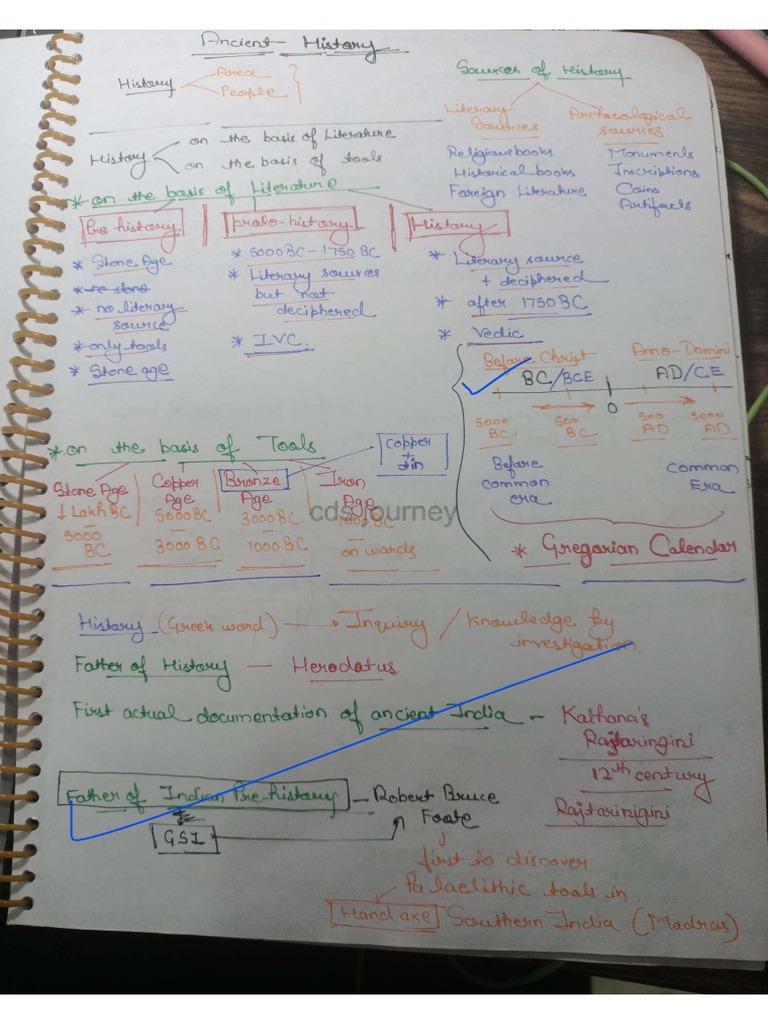 Ancient History
History
Area
People
Sources of History
Literary Sources
Archaeological sources
Religious books
Historical books
Foreign Literature
Monuments
Inscriptions
Coins
Artifacts
History
on the basis of Literature
on the basis of tools
* on the basis of Literature
Pre history
* Stone Age
* no literary source
* only tools
* Stone age
proto-history
* 5000BC - 1750 BC
* Literary sources
but not
deciphered
* I.V.C.
History
* Literary source
+ deciphered
* after 1750 BC
* Vedic
Before Christ
Anno-Domini
BC/BCE
AD/CE
0
5000 BC
500 BC
500 AD
5000 AD
Before
common
era
Common
Era
* Gregorian Calendar
* on the basis of Tools
Stone Age
1 Lakh BC
-
5000 BC
Copper Age
5000BC
-
3000 BC
Bronze Age
3000 BC
-
1000 BC
Copper
+
tin
Iron Age
1000BC
-
on wards
cds journey
History (Greek word) → Inquiry / Knowledge by
investigation
Father of History — Herodotus
First actual documentation of ancient India - Kalhana's
Rajtaringini
12th century
Rajtarinigini
Father of Indian Pre-history — Robert Bruce
Foote
GSI
first to discover
Palaelithic tools in
Hand axe Southern India (Madras)